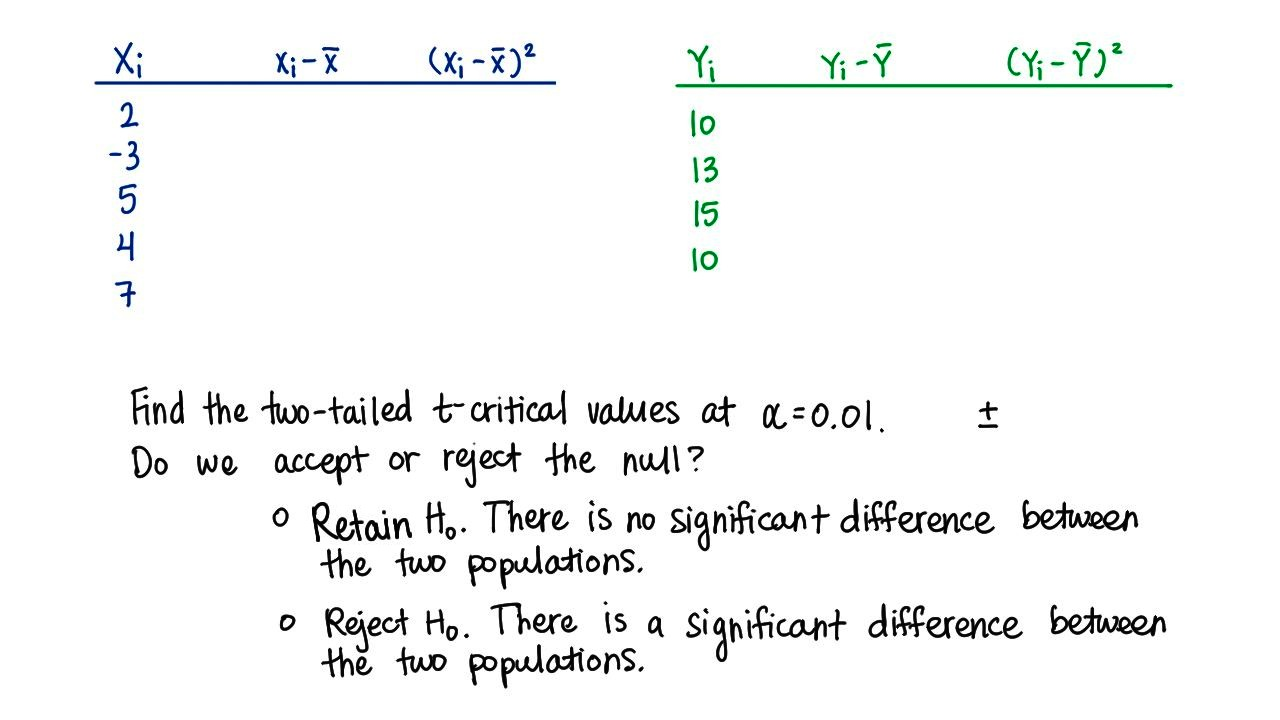 Xᵢ xᵢ-x̄ (xᵢ-x̄)² Yᵢ Yᵢ-Ȳ (Yᵢ-Ȳ)²
2 10
-3 13
5 15
4 10
7
Find the two-tailed t-critical values at α=0.01. ±
Do we accept or reject the null?
○ Retain H₀. There is no significant difference between
the two populations.
○ Reject H₀. There is a significant difference between
the two populations.